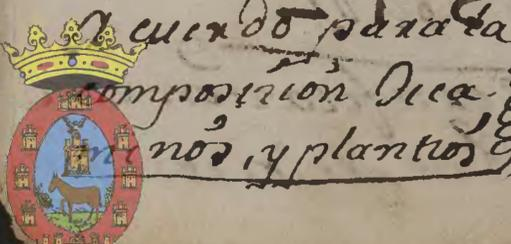 Acuerdo para la
composizion De ca-
minos, y plantios